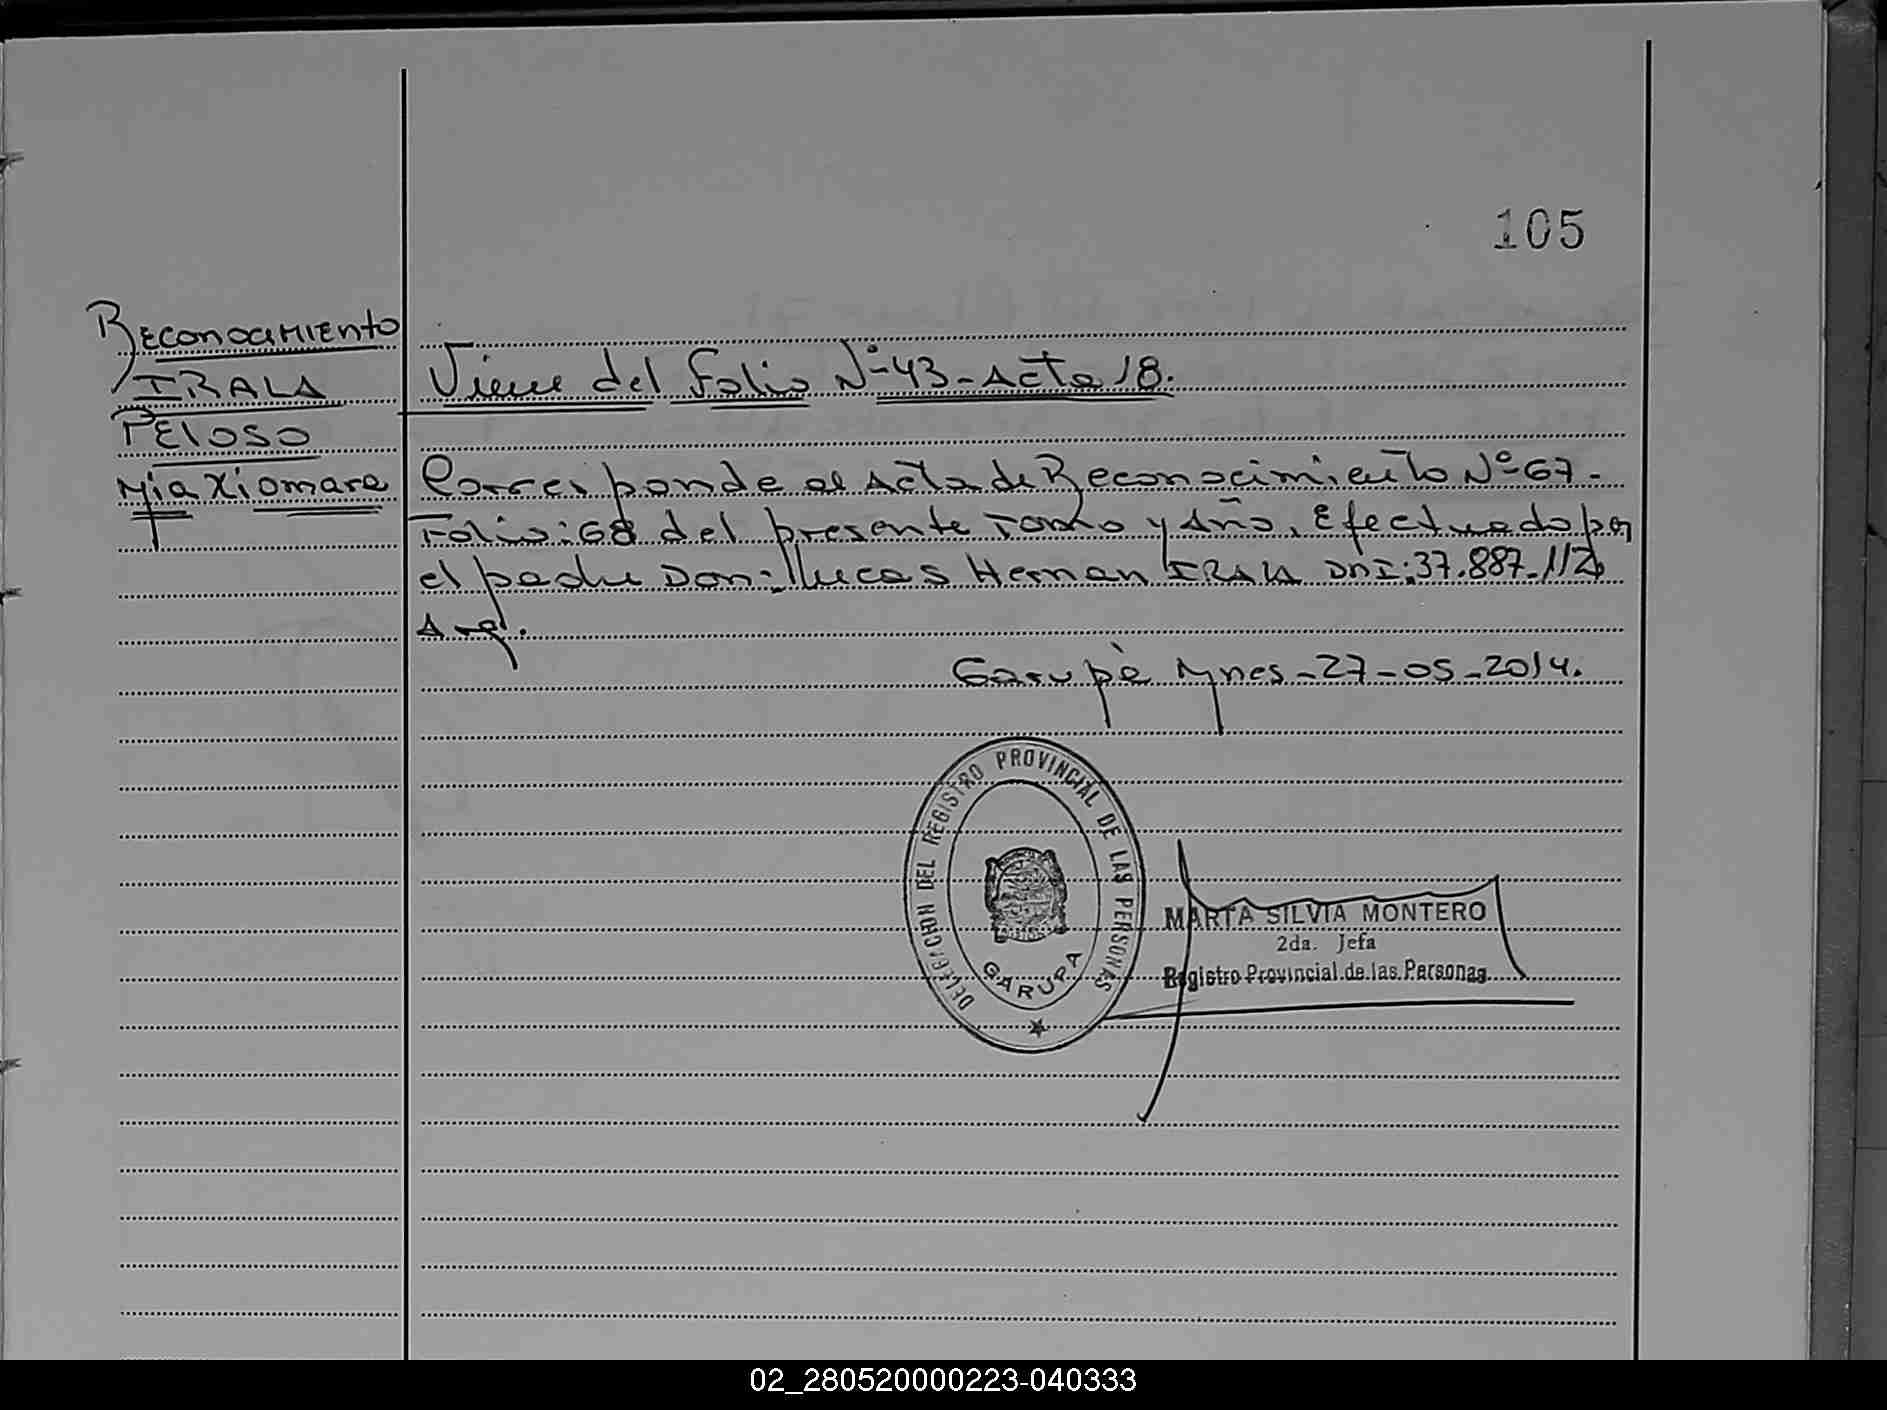 105
Reconocimiento
IRALA
PELOSO
Mia Xiomara
Viene del Folio Nº 43 - Acta 18.
Corresponde al Acta de Reconocimiento Nº 67 -
Folio: 68 del presente Tomo y Año, Efectuado por
el padre Don: Lucas Hernan IRALA DNI: 37.887.112
Arg.
Garupè Mnes - 27 - 05 - 2014.
DELEGACION DEL REGISTRO PROVINCIAL DE LAS PERSONAS
GARUPA
MARTA SILVIA MONTERO
2da. Jefa
Registro Provincial de las Personas
02_280520000223-040333